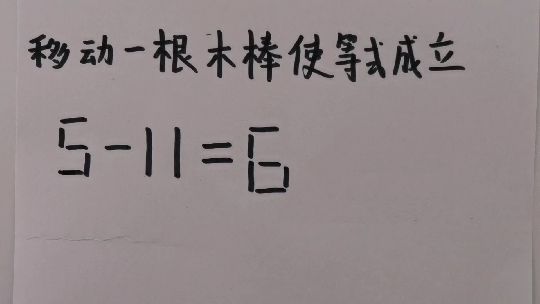 移动一根木棒使等式成立
5-11=6